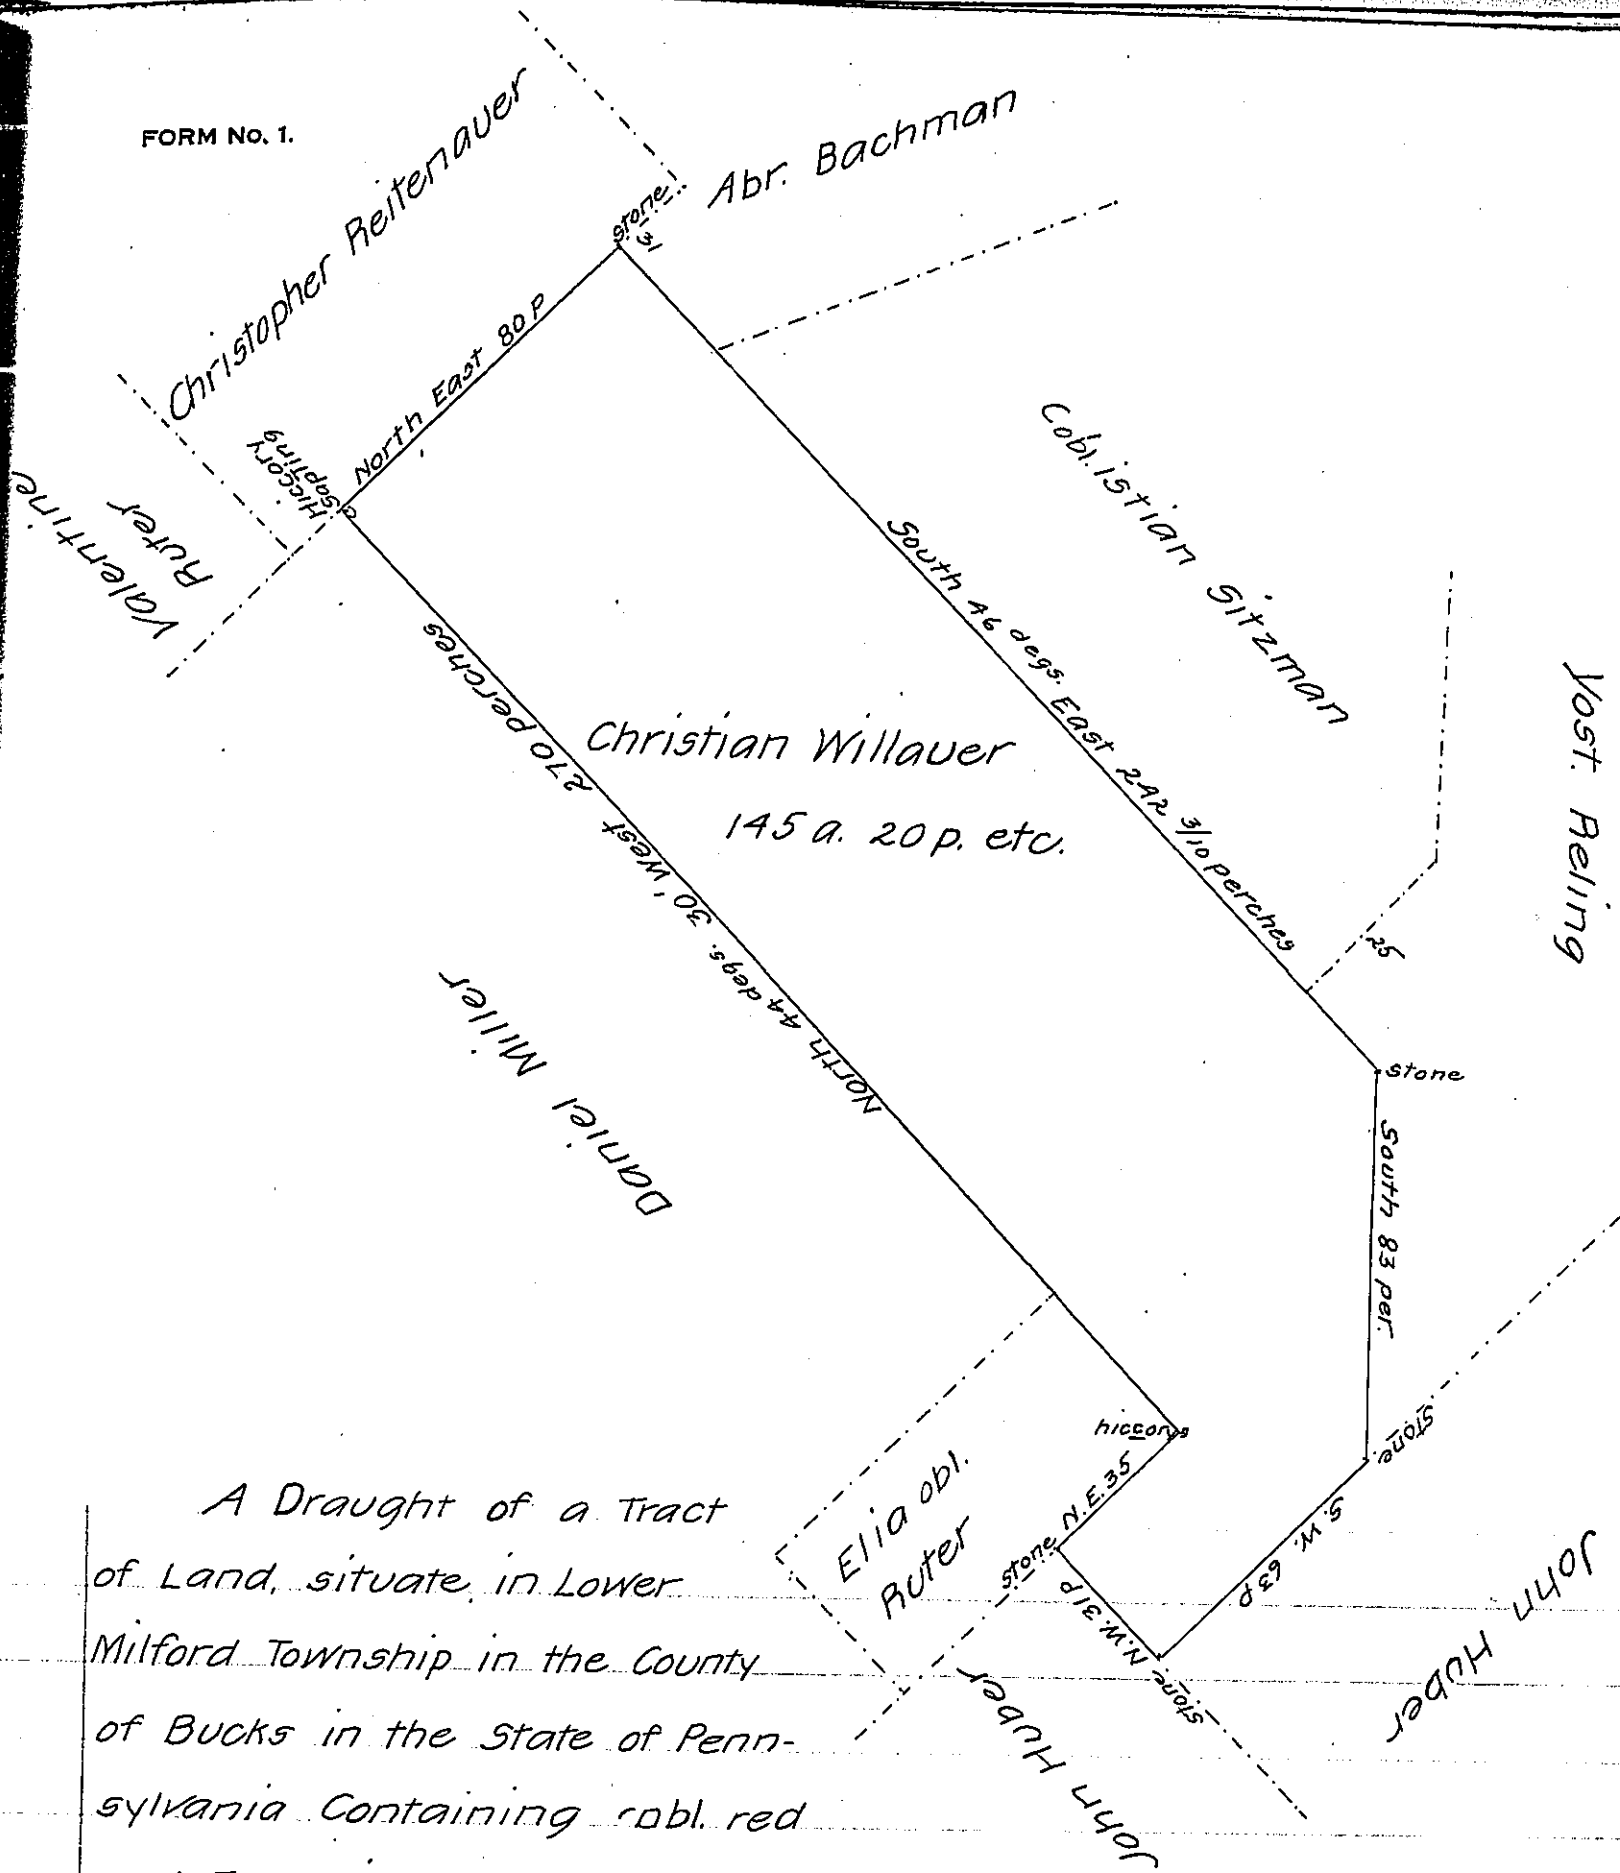 FORM No. 1.
Christopher Reitenauer
Abr. Bachman
stone
13
North East 80 P
Hiccory
Sapling
Valentine
Ruter
Cobl.istian Sitzman
South 46 degs. East 242 3/10 perches
Yost. Reling
25
Christian Willauer
145 a. 20 p. etc.
North 44 degs. 30' West 270 perches
Daniel Miller
stone
South 83 per.
stone
hiccory
N.E. 35
stone
Elia obl.
Ruter
N.W. 31 P
S.W. 63 P
stone
John Huber
John Huber
A Draught of a Tract
of Land, situate in Lower
Milford Township in the County
of Bucks in the State of Penn-
sylvania Containing obl. red